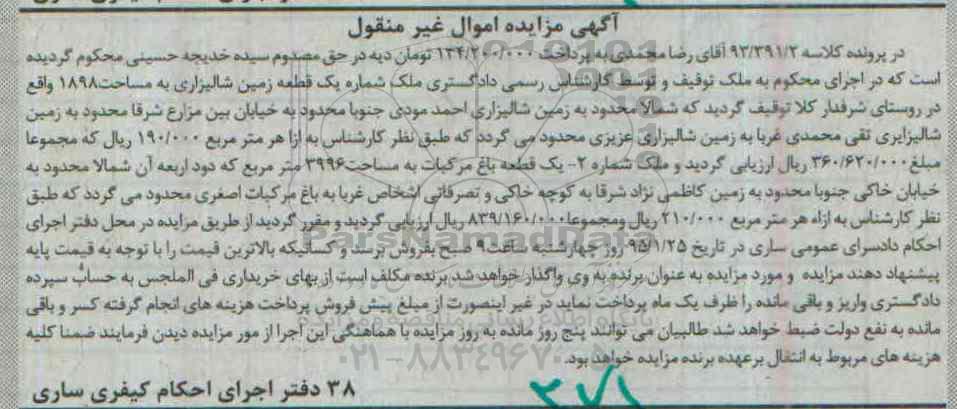 آگهی مزایده اموال غیر منقول
در پرونده کلاسه ۹۲/۳۹۱/۲ آقای رضا محمدی به پرداخت ۱۳۴/۲۰۰/۰۰۰ تومان دیه در حق مصدوم سیده خدیجه حسینی محکوم گردیده
است که در اجرای محکوم به ملک توقیف و توسط کارشناس رسمی دادگستری ملک شماره یک قطعه زمین شالیزاری به مساحت۱۸۹۸ واقع
در روستای شرفدار کلا توقیف گردید که شمالا محدود به زمین شالیزاری احمد مودی جنوبا محدود به خیابان بین مزارع شرقا محدود به زمین
شالیزایری تقی محمدی غربا به زمین شالیزاری عزیزی محدود می گردد که طبق نظر کارشناس به ازا هر متر مربع ۱۹۰/۰۰۰ ریال که مجموعا
مبلغ۳۶۰/۶۲۰/۰۰۰ ریال ارزیابی گردید و ملک شماره ۲- یک قطعه باغ مرکبات به مساحت۳۹۹۶ متر مربع که دود اربعه آن شمالا محدود به
خیابان خاکی جنوبا محدود به زمین کاظمی نژاد شرقا به کوچه خاکی و تصرفاتی اشخاص غربا به باغ مرکبات اصغری محدود می گردد که طبق
نظر کارشناس به ازاء هر متر مربع ۲۱۰/۰۰۰ ریال ومجموعا۸۳۹/۱۶۰/۰۰۰ ریال ارزیابی گردید و مقرر گردید از طریق مزایده در محل دفتر اجرای
احکام دادسرای عمومی ساری در تاریخ ۹۵/۱/۲۵ روز چهارشنبه ساعت ۹ صبح بفروش برسد و کسانیکه بالاترین قیمت را با توجه به قیمت پایه
پیشنهاد دهند مزایده و مورد مزایده به عنوان برنده به وی واگذار خواهد شد برنده مکلف است از بهای خریداری فی الملجس به حساب سپرده
دادگستری واریز و باقی مانده را ظرف یک ماه پرداخت نماید در غیر اینصورت از مبلغ پیش فروش پرداخت هزینه های انجام گرفته کسر و باقی
مانده به نفع دولت ضبط خواهد شد طالبیان می توانند پنج روز مانده به روز مزایده با هماهنگی این اجرا از مور مزایده دیدن فرمایند ضمنا کلیه
هزینه های مربوط به انتقال برعهده برنده مزایده خواهد بود.
۳۸ دفتر اجرای احکام کیفری ساری
۳۷۱
ParsNamadData
۰۲۱-۸۸۳۴۹۶۷۰-۵